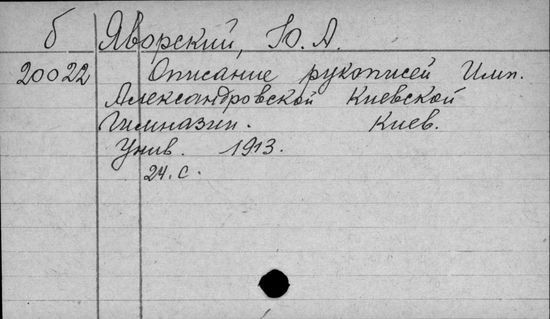 б Яворский, Ю. А.
20022 Описание рукописей Имп.
Александровской Киевской
Гимназии. Киев.
Унив. 1913.
24. с.